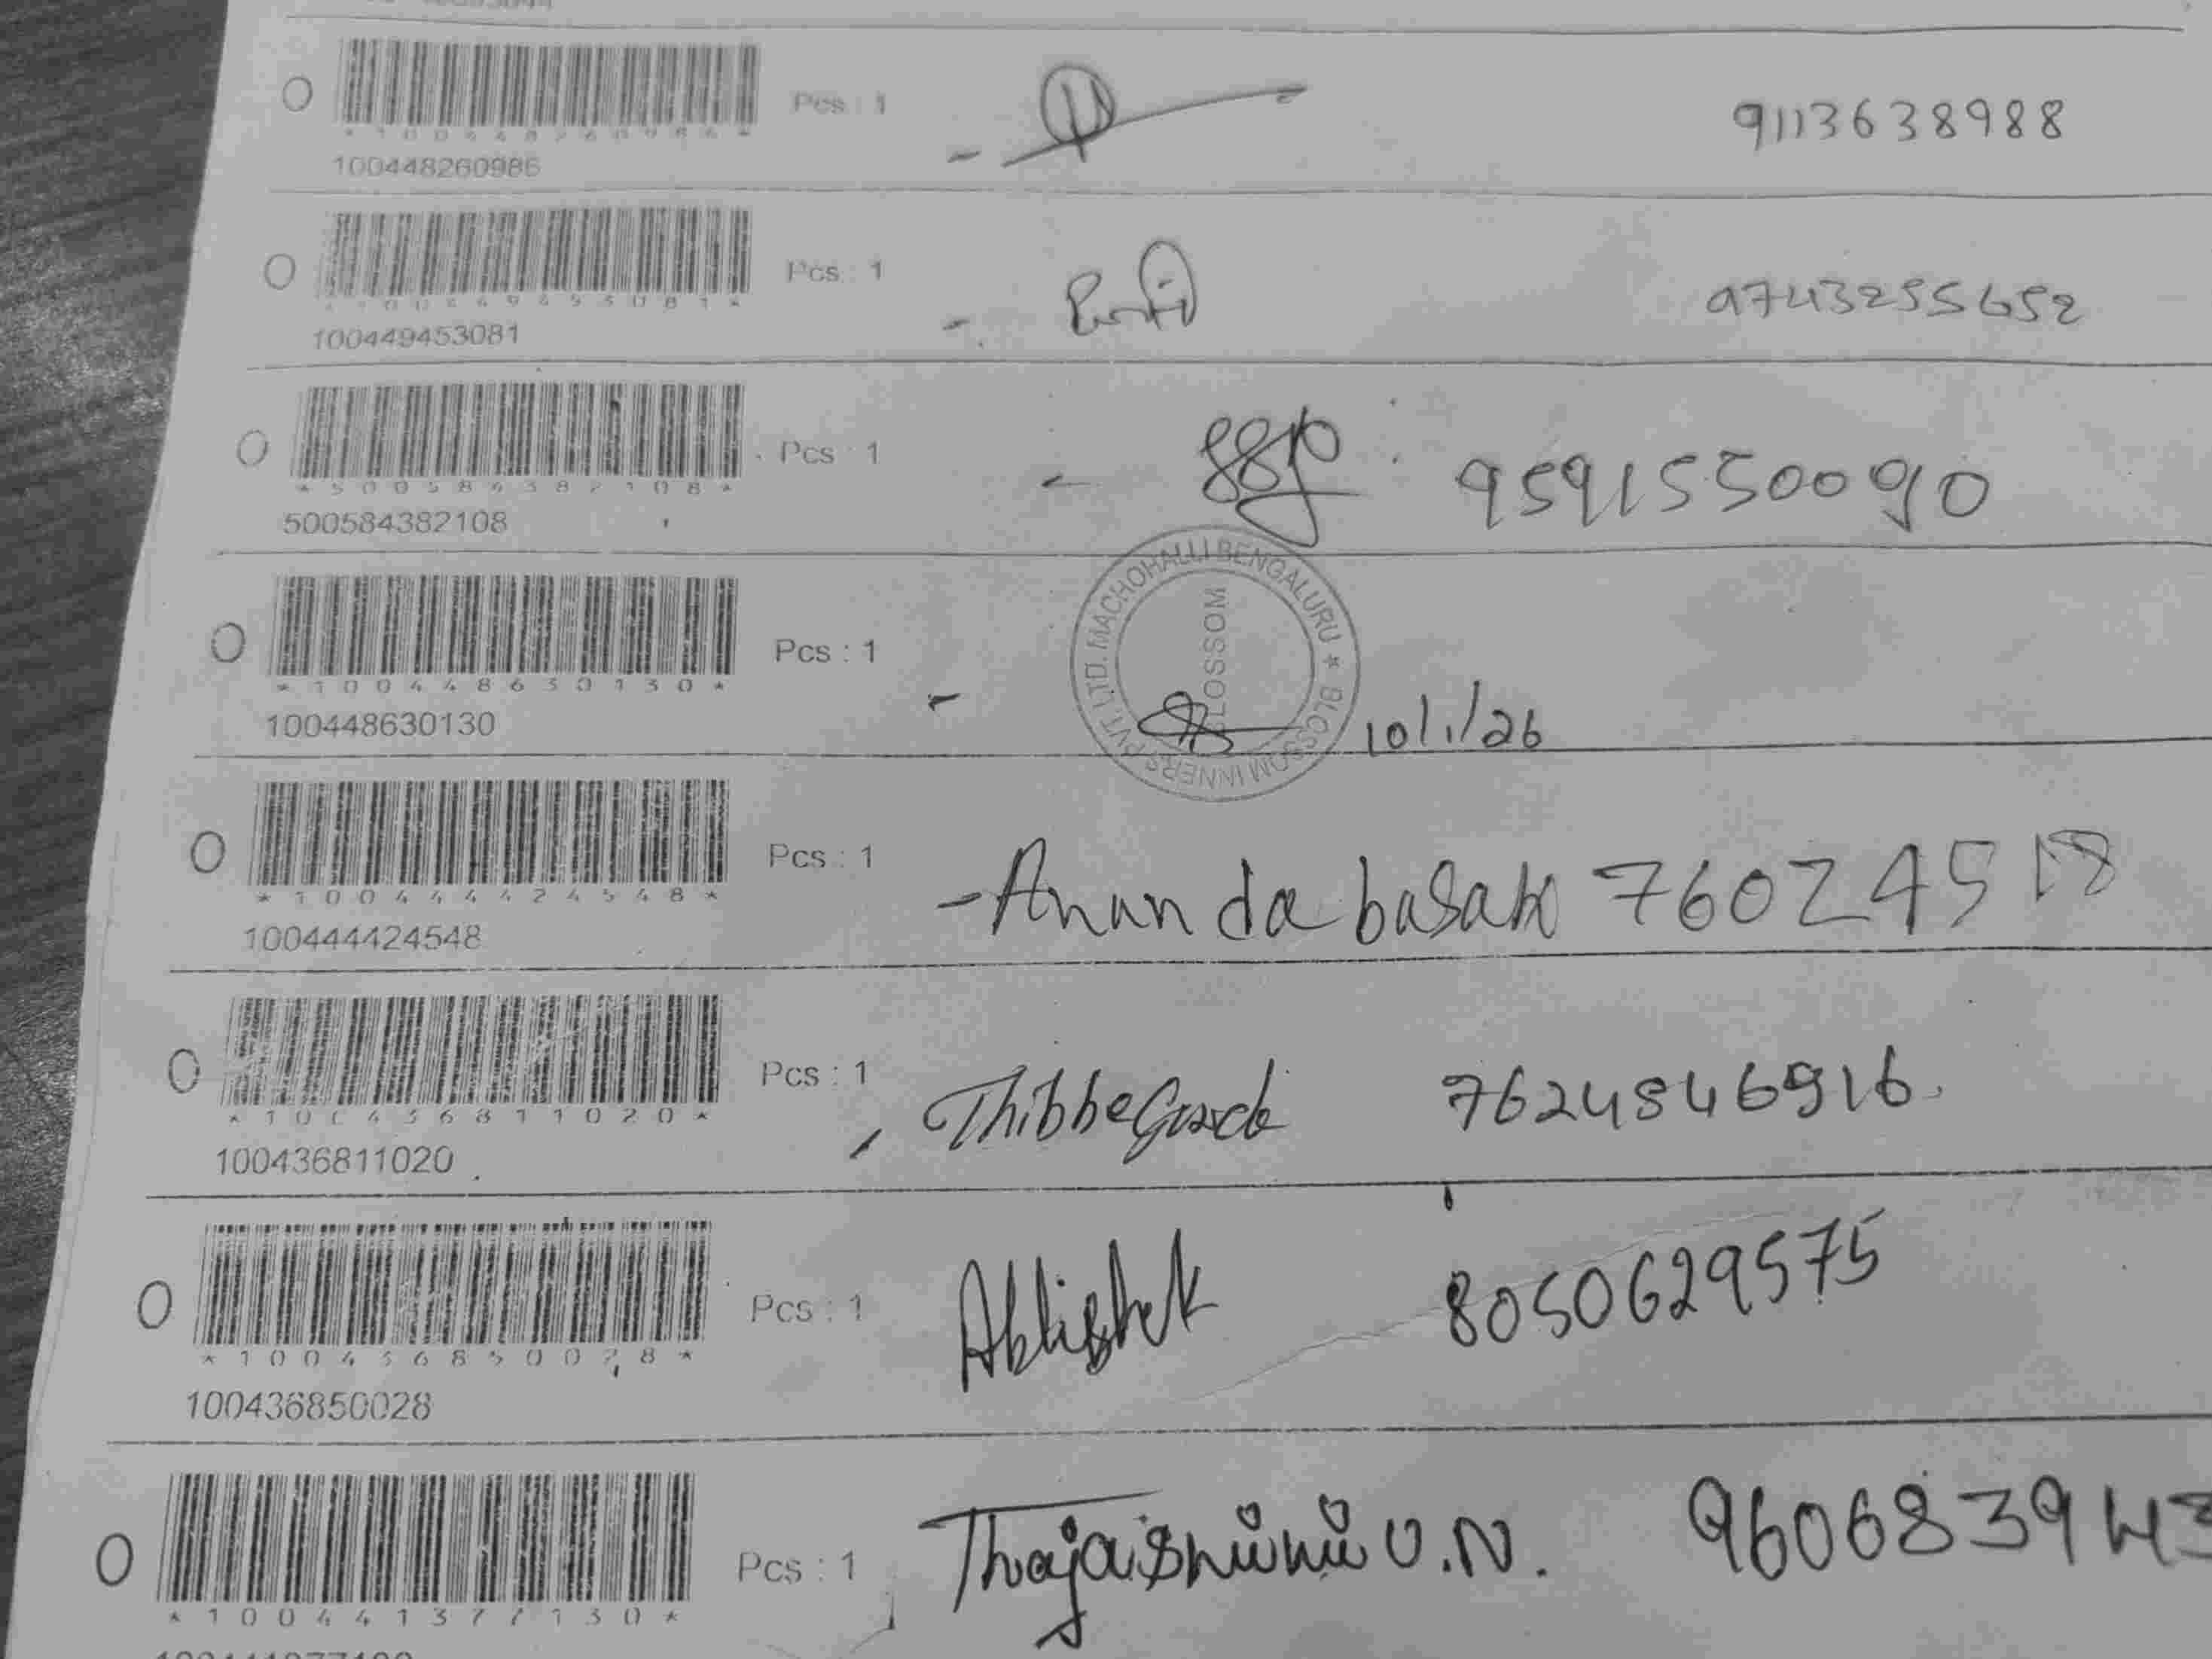 *100448260986*
Pcs : 1
9113638988
100448260986
*100449453081*
Pcs : 1
9743255652
100449453081
*500584382108*
Pcs : 1
9591550090
500584382108
*100448630130*
Pcs : 1
BLOSSOM INNERS PVT. LTD. MACHOHALLI BENGALURU ★
BLOSSOM
10/1/26
100448630130
*100444424548*
Pcs : 1
- Ananda basak 76024518
100444424548
*100436811020*
Pcs : 1
Thibbegowda 7624846916.
100436811020
*100436850028*
Pcs : 1
Abhishek 8050629575
100436850028
*100441377130*
Pcs : 1
U.N. 960683943